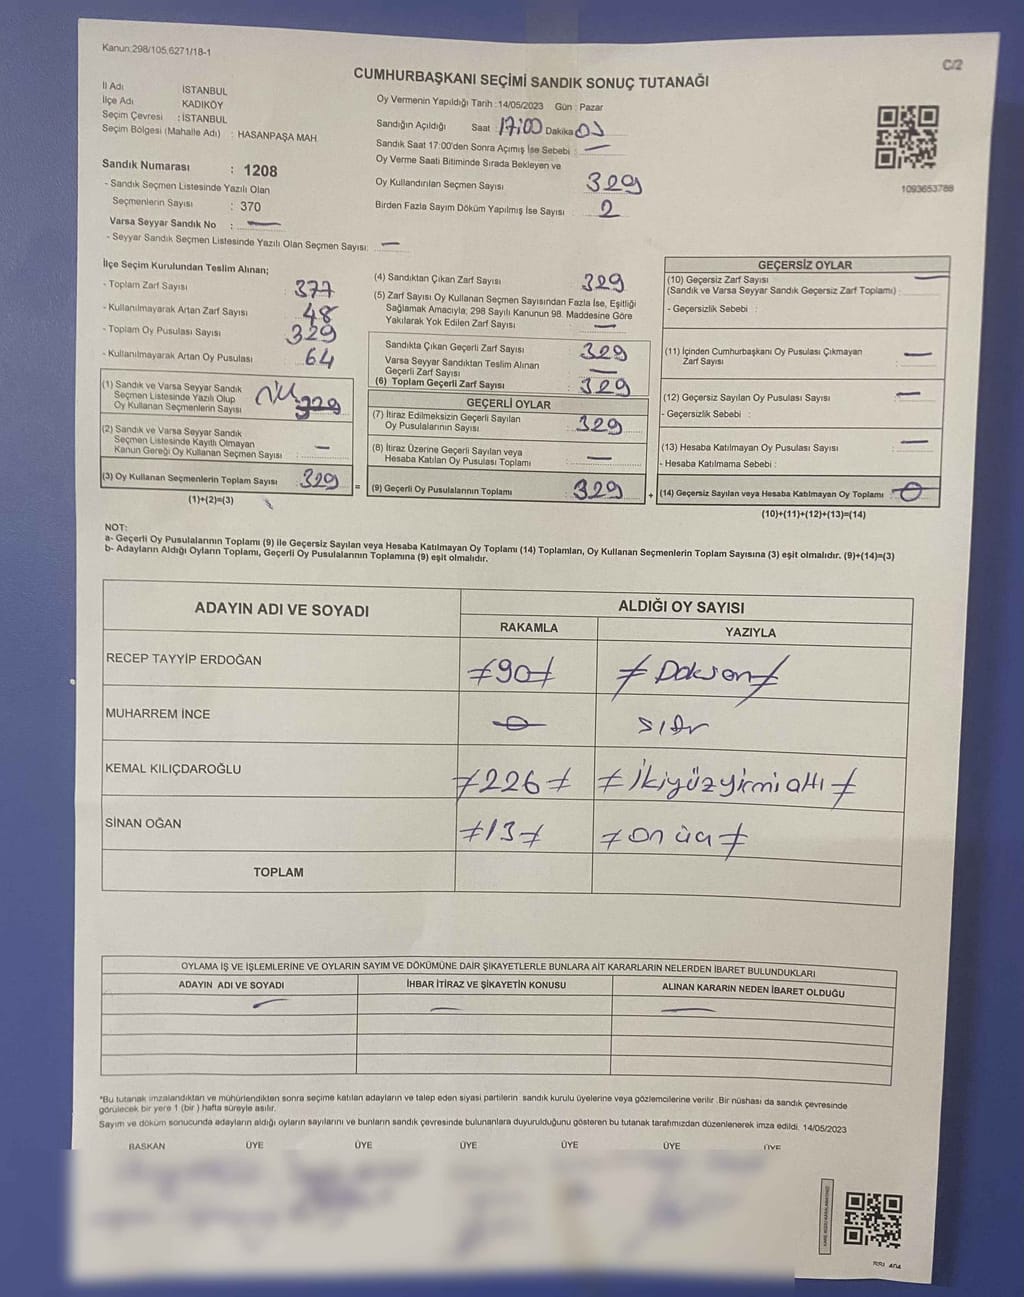 Kanun:298/105,6271/18-1
C/2
CUMHURBAŞKANI SEÇİMİ SANDIK SONUÇ TUTANAĞI
İl Adı İSTANBUL
İlçe Adı KADIKÖY
Seçim Çevresi : İSTANBUL
Seçim Bölgesi (Mahalle Adı) : HASANPAŞA MAH
Sandık Numarası : 1208
- Sandık Seçmen Listesinde Yazılı Olan
Seçmenlerin Sayısı : 370
Varsa Seyyar Sandık No : —
- Seyyar Sandık Seçmen Listesinde Yazılı Olan Seçmen Sayısı: —
Oy Vermenin Yapıldığı Tarih :14/05/2023 Gün : Pazar
Sandığın Açıldığı Saat : 17:00 Dakika
Sandık Saat 17:00'den Sonra Açımış İse Sebebi : —
Oy Verme Saati Bitiminde Sırada Bekleyen ve
Oy Kullandırılan Seçmen Sayısı 329
Birden Fazla Sayım Döküm Yapılmış İse Sayısı : 2
1093653788
İlçe Seçim Kurulundan Teslim Alınan;
- Toplam Zarf Sayısı : 377
- Kullanılmayarak Artan Zarf Sayısı : 48
- Toplam Oy Pusulası Sayısı : 329
- Kullanılmayarak Artan Oy Pusulası : 64
(1) Sandık ve Varsa Seyyar Sandık
Seçmen Listesinde Yazılı Olup
Oy Kullanan Seçmenlerin Sayısı 329
(2) Sandık ve Varsa Seyyar Sandık
Seçmen Listesinde Kayıtlı Olmayan
Kanun Gereği Oy Kullanan Seçmen Sayısı : —
(3) Oy Kullanan Seçmenlerin Toplam Sayısı : 329 =
(1)+(2)=(3)
(4) Sandıktan Çıkan Zarf Sayısı 329
(5) Zarf Sayısı Oy Kullanan Seçmen Sayısından Fazla İse, Eşitliği
Sağlamak Amacıyla; 298 Sayılı Kanunun 98. Maddesine Göre
Yakılarak Yok Edilen Zarf Sayısı : —
Sandıkta Çıkan Geçerli Zarf Sayısı : 329
Varsa Seyyar Sandıktan Teslim Alınan
Geçerli Zarf Sayısı : —
(6) Toplam Geçerli Zarf Sayısı : 329
GEÇERLİ OYLAR
(7) İtiraz Edilmeksizin Geçerli Sayılan
Oy Pusulalarının Sayısı : 329
(8) İtiraz Üzerine Geçerli Sayılan veya
Hesaba Katılan Oy Pusulası Toplamı : —
(9) Geçerli Oy Pusulalarının Toplamı : 329 +
GEÇERSİZ OYLAR
(10) Geçersiz Zarf Sayısı —
(Sandık ve Varsa Seyyar Sandık Geçersiz Zarf Toplamı) :
- Geçersizlik Sebebi :
(11) İçinden Cumhurbaşkanı Oy Pusulası Çıkmayan
Zarf Sayısı : —
(12) Geçersiz Sayılan Oy Pusulası Sayısı : —
- Geçersizlik Sebebi :
(13) Hesaba Katılmayan Oy Pusulası Sayısı : —
- Hesaba Katılmama Sebebi :
(14) Geçersiz Sayılan veya Hesaba Katılmayan Oy Toplamı : 0
(10)+(11)+(12)+(13)=(14)
NOT:
a- Geçerli Oy Pusulalarının Toplamı (9) ile Geçersiz Sayılan veya Hesaba Katılmayan Oy Toplamı (14) Toplamları, Oy Kullanan Seçmenlerin Toplam Sayısına (3) eşit olmalıdır. (9)+(14)=(3)
b- Adayların Aldığı Oyların Toplamı, Geçerli Oy Pusulalarının Toplamına (9) eşit olmalıdır.
ADAYIN ADI VE SOYADI ALDIĞI OY SAYISI
RAKAMLA YAZIYLA
RECEP TAYYİP ERDOĞAN ≠90≠ ≠ Doksan ≠
MUHARREM İNCE 0 sıfır
KEMAL KILIÇDAROĞLU ≠226≠ ≠ İkiyüzyirmialtı ≠
SİNAN OĞAN ≠13≠ ≠ on üç ≠
TOPLAM
OYLAMA İŞ VE İŞLEMLERİNE VE OYLARIN SAYIM VE DÖKÜMÜNE DAİR ŞİKAYETLERLE BUNLARA AİT KARARLARIN NELERDEN İBARET BULUNDUKLARI
ADAYIN ADI VE SOYADI İHBAR İTİRAZ VE ŞİKAYETİN KONUSU ALINAN KARARIN NEDEN İBARET OLDUĞU
— — —
*Bu tutanak imzalandıktan ve mühürlendikten sonra seçime katılan adayların ve talep eden siyasi partilerin sandık kurulu üyelerine veya gözlemcilerine verilir .Bir nüshası da sandık çevresinde
görülecek bir yere 1 (bir ) hafta süreyle asılır.
Sayım ve döküm sonucunda adayların aldığı oyların sayılarını ve bunların sandık çevresinde bulunanlara duyurulduğunu gösteren bu tutanak tarafımızdan düzenlenerek imza edildi. 14/05/2023
BAŞKAN ÜYE ÜYE ÜYE ÜYE ÜYE ÜYE